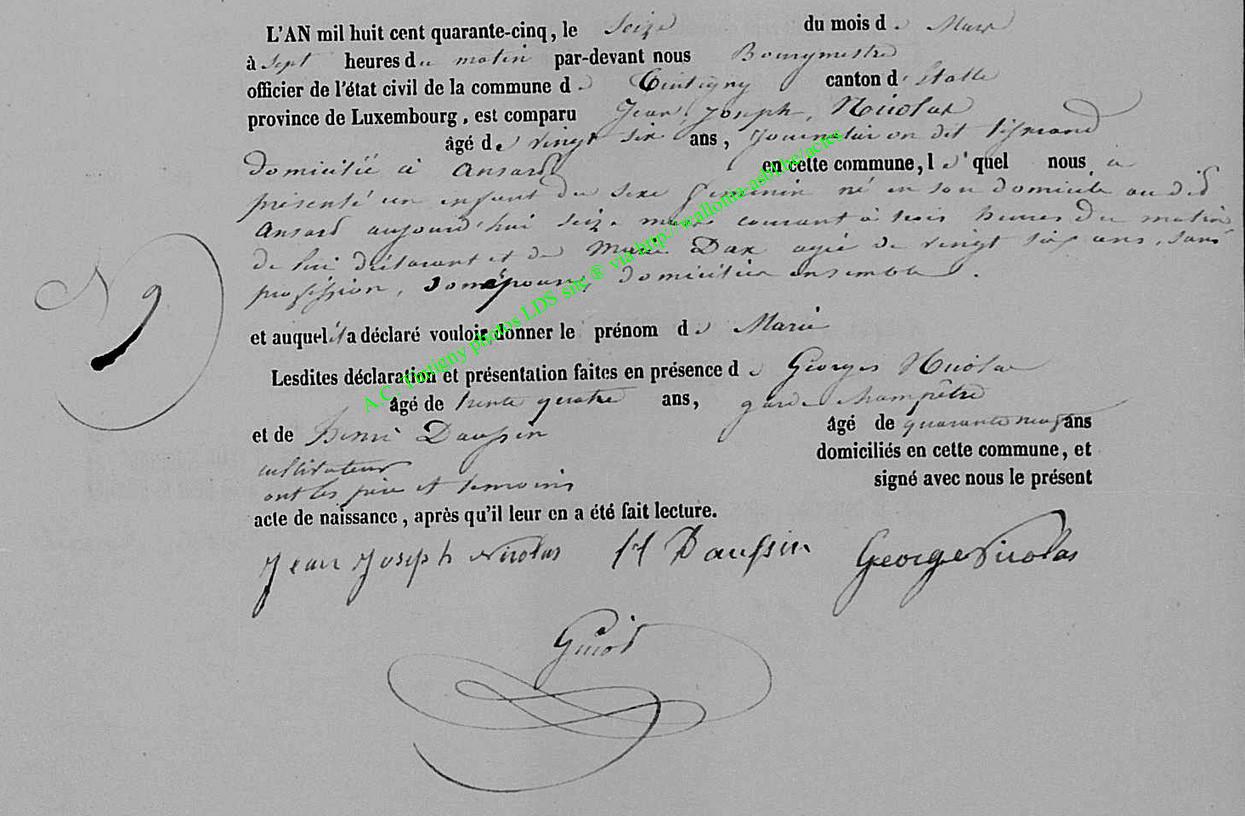 L'AN mil huit cent quarante-cinq, le Seize du mois de Mars
à Sept heures du matin par-devant nous Bourgmestre
officier de l'état civil de la commune de Tintigny canton d'Etalle
province de Luxembourg, est comparu Jean Joseph Nicolas
âgé de vingt six ans, Journalier on dit
domicilié à Ansart en cette commune, lequel nous a
présenté un enfant du sexe féminin né en son domicile au dit
Ansart aujourd'hui seize mars courant à trois heures du matin
de lui déclarant et de Marie Dax agée de vingt ans, sans
profession, son épouse, domiciliés ensemble.
9
et auquel il a déclaré vouloir donner le prénom de Marie
Lesdites déclaration et présentation faites en présence de Georges Nicolas
âgé de trente quatre ans, garde champêtre
et de Henri Daussin âgé de quarante neuf ans
instituteur domiciliés en cette commune, et
ont les père et temoins signé avec nous le présent
acte de naissance, après qu'il leur en a été fait lecture.
Jean Joseph Nicolas H Daussin George Nicolas
Guiot
A.C. Tintigny photos LDS snc ® via http://wallonia-asbl.be/actes